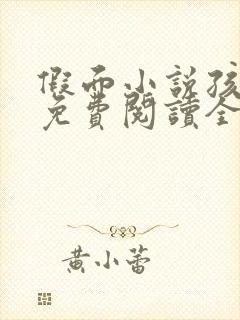 假面小說孩
免費閱讀全
黃小蕾